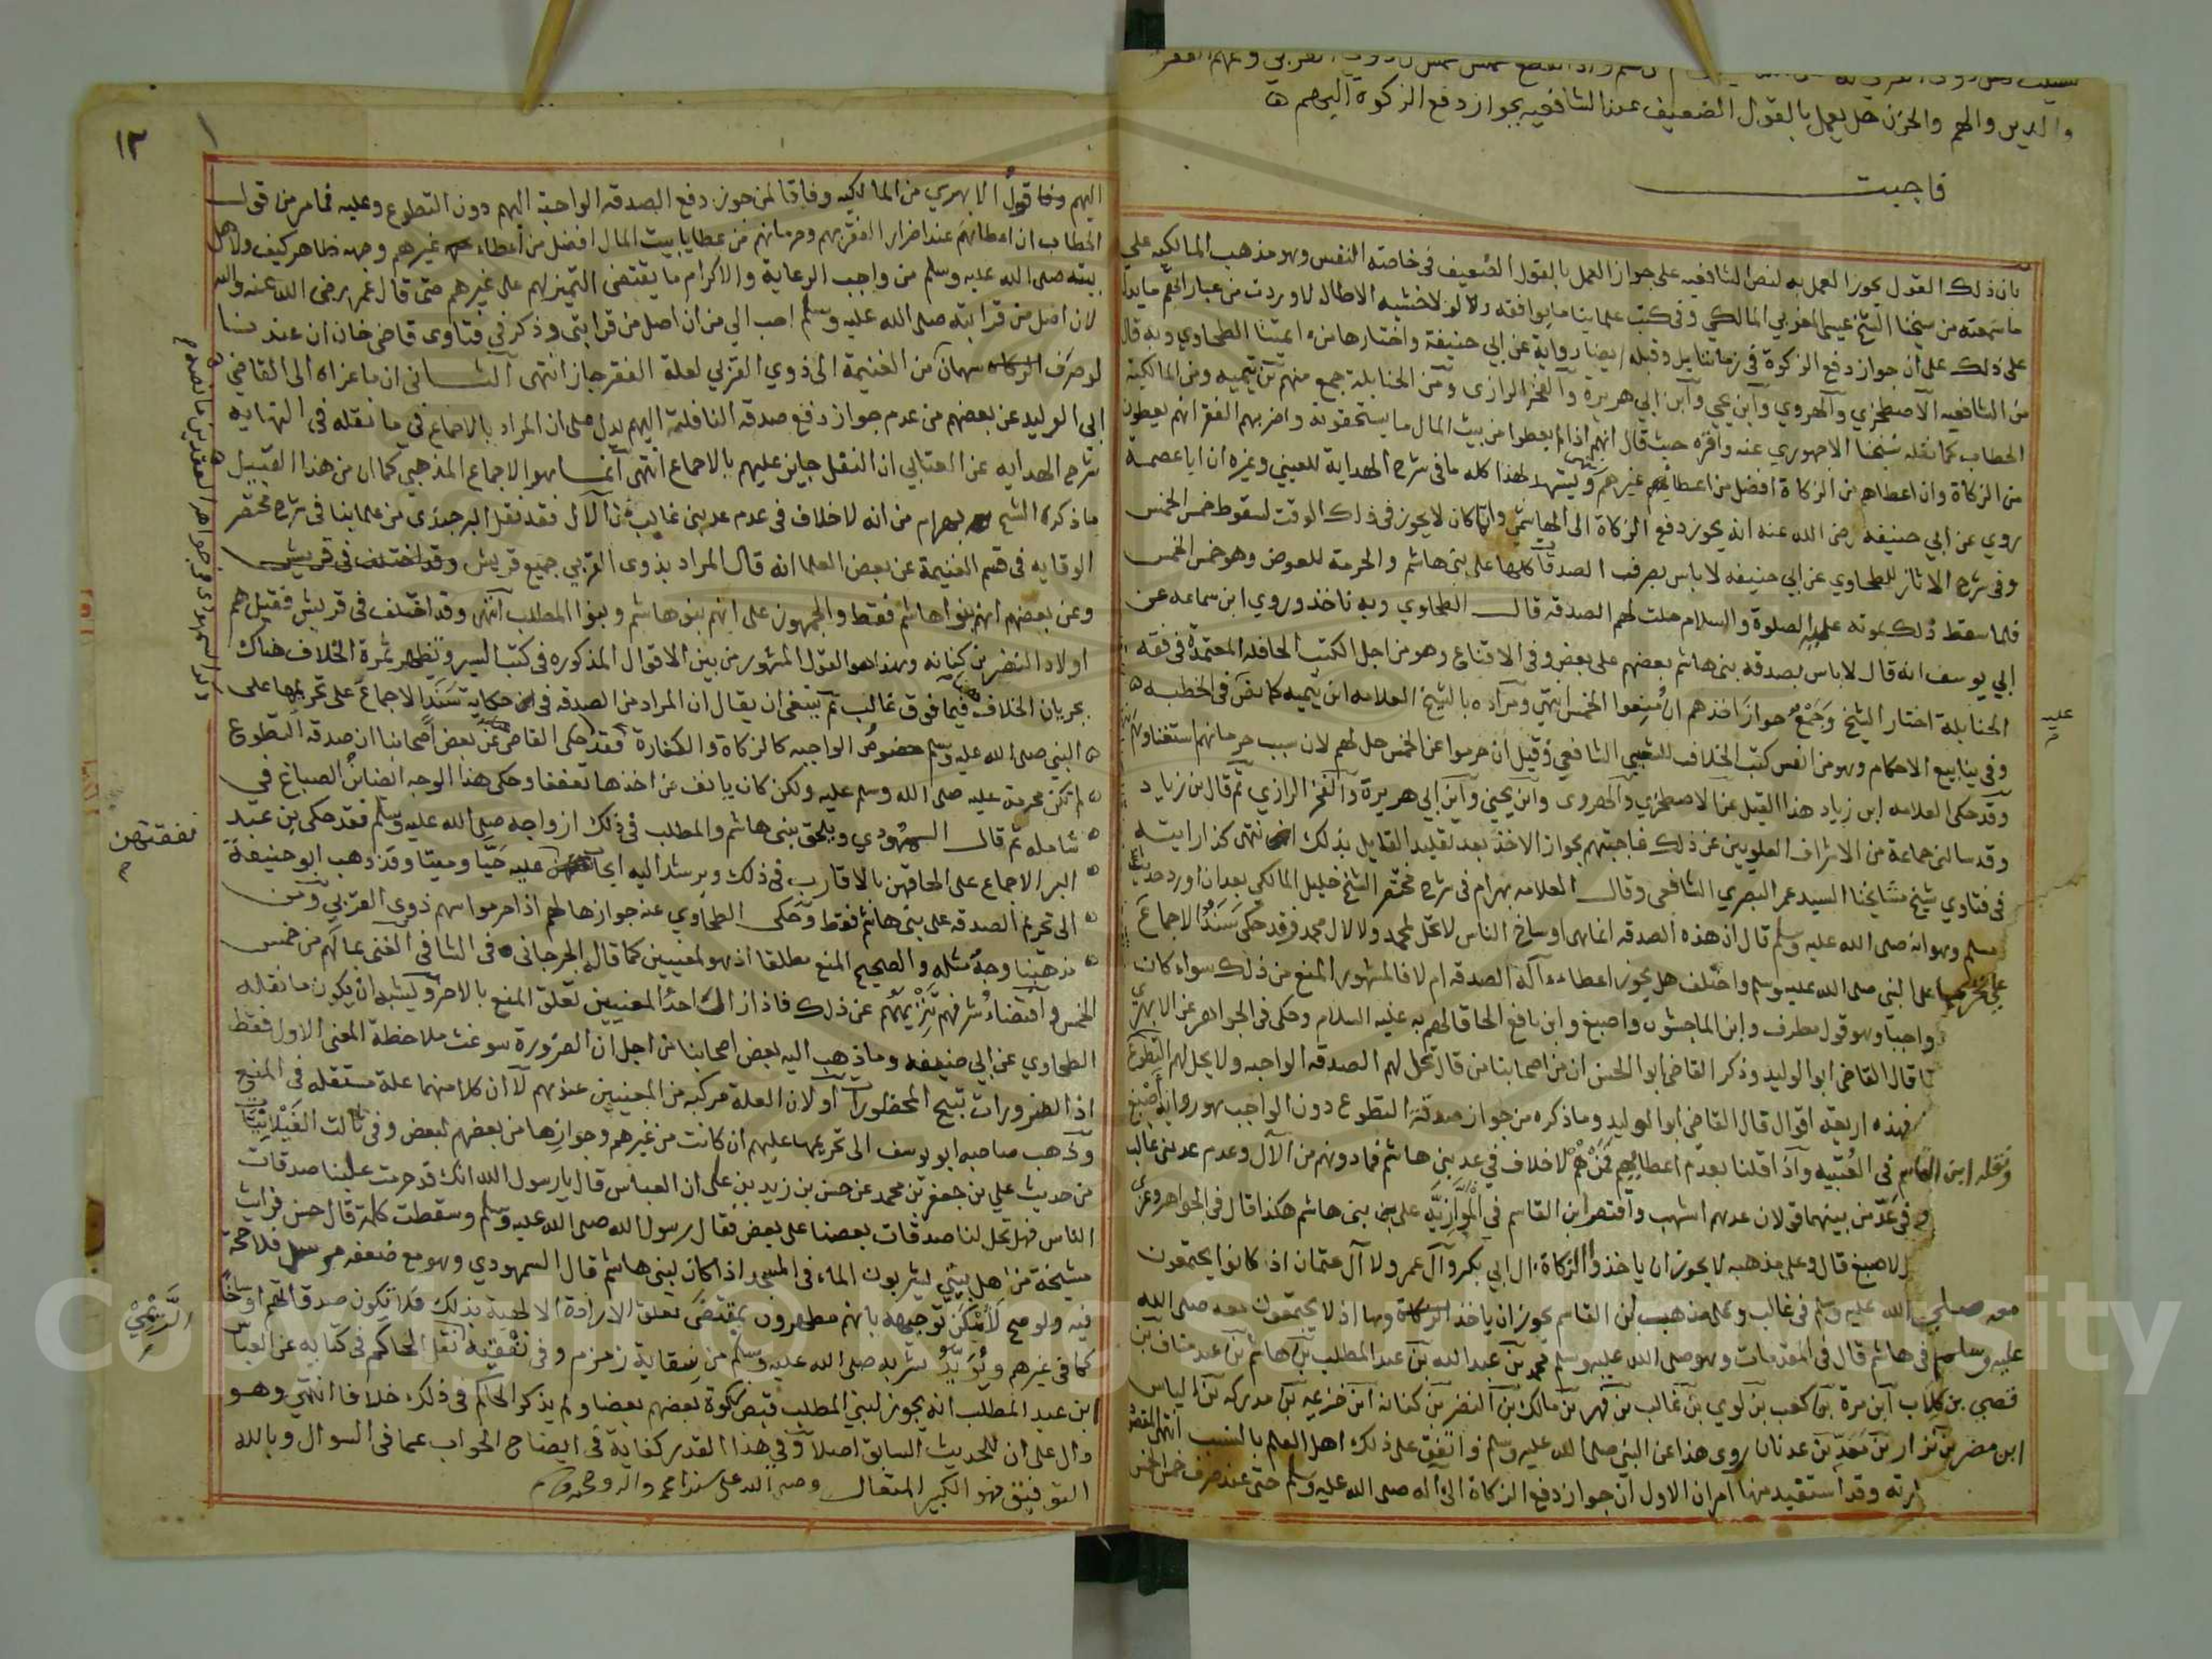 والدين والهم والحزن هل يعمل بالقول الضعيف عند الشافعيه بجواز دفع الزكوة اليهم
فاجبت
بان ذلك القول يجوز العمل به لنص الشافعيه على جواز العمل بالقول الضعيف في خاصته النفس وهو مذهب المالكيه علي
ما سمعته من شيخنا الشيخ عيسى المغربي المالكي وفي كتب علماينا ما يوافقه ولولا خشيه الاطاله لاوردت من عباراتهم ما يدل
على ذلك على ان جواز دفع الزكوة في زماننا بل وقبله ايضا رواية عن ابي حنيفة واختارها من ائمتنا الطحاوي وبه قال
من الشافعيه الاصطخري والهروي وابن يحيى وابن ابي هريرة والفخر الرازي ومن الحنابلة جمع منهم بن تيميه ومن المالكية
الحطاب كما نقله شيخنا الاجهوري عنه واقره حيث قال انهم اذا لم يعطوا من بيت المال ما يستحقونه واضر بهم الفقر انهم يعطون
من الزكاة وان اعطاهم من الزكاة افضل من اعطاء غيرهم ويشهد لهذا كله ما في شرح الهداية للعيني وغيره ان ابا عصمة
روي عن ابي حنيفة رضى الله عنه انه يجوز دفع الزكاة الى الهاشمي وانما كان لا يجوز في ذلك الوقت لسقوط خمس الخمس
وفي شرح الاثار للطحاوي عن ابي حنيفه لا باس بصرف الصدقات كلها على بني هاشم والحرمة للعوض وهو خمس الخمس
فلما سقط ذلك بموته عليه الصلوة والسلام حلت لهم الصدقه قال الطحاوي وبه ناخذ وروي ابن سماعه عن
ابي يوسف انه قال لا باس بصدقه بني هاشم بعضهم على بعض وفي الاقناع وهو من اجل الكتب الحافله المعتمدة في فقه
الحنابلة اختار الشيخ وجمع جواز اخذهم ان منعوا الخمس انتهى ومراده بالشيخ العلامه ابن تيميه كما نص في الخطبه
وفي ينابيع الاحكام وهو من انفس كتب الخلاف للشعبي الشافعي وقيل ان حرموا عن الخمس حل لهم لان سبب حرمانهم استغناوهم
عليه
وقد حكى العلامه ابن زياد هذا القيل عن الاصطخري والهروى وابن يحيى وابن ابي هريرة والفخر الرازي ثم قال بن زياد
وقد سالني جماعة من الاشراف العلويين عن ذلك فاجبتهم بجواز الاخذ بعد تقليد القايل بذلك انتهى كذا رايته
في فتاوي شيخ مشايخنا السيد عمر البصري الشافعى وقال العلامه بهرام في شرح مختصر الشيخ خليل المالكي بعد ان اورد حديث
مسلم وهو انه صلى الله عليه وسلم قال ان هذه الصدقه انما هى اوساخ الناس لا تحل لمحمد ولا لال محمد فرقد حكى سند الاجماع
على تحريمها على النبي صلى الله عليه وسلم واختلف هل يجوز اعطاء آله الصدقه ام لا فالمشهور المنع من ذلك سواء كان
واجبا وهو قول مطرف وابن الماجشون واصبغ وابن نافع الحاقا لهم به عليه السلام وحكى في الجواهر عن الابهري
قال القاضي ابو الوليد وذكر القاضي ابو الحسن ان من اصحابنا من قال تحل لهم الصدقه الواجبه ولا يحل لهم التطوع
فهذه اربعة اقوال قال القاضي ابو الوليد وما ذكره من جواز صدقة التطوع دون الواجب هو رواية اصبغ
ونقله ابن القاسم في العتبيه واذا قلنا بعدم اعطائهم فمن هم لا خلاف في عد بني هاشم فما دونهم من الآل وعدم عد بنى غالب
وفي عد من بينهما قولان عدهم اشهب واقتصر ابن القاسم في الموازيه على بني هاشم هكذا قال في الجواهر وعزى
لاصبغ قال وعلى مذهبه لا يجوز ان ياخذوا الزكاة ال ابي بكر وآل عمر ولا آل عثمان اذ كانوا يجتمعون
معه صلى الله عليه وسلم في غالب وعلى مذهب ابن القاسم يجوز ان ياخذ الزكاة وها اذ لا يجتمعون معه صلى الله
عليه وسلم في هاشم قال في المقدمات وهو صلى الله عليه وسلم محمد بن عبد الله بن عبد المطلب بن هاشم بن عبد مناف بن
قصي بن كلاب ابن مرة بن كعب بن لوي بن غالب بن فهر بن مالك بن النضر بن كنانه ابن خزيمه بن مدركه بن الياس
ابن مضر بن نزار بن معد بن عدنان روى هذا عن النبي صلى الله عليه وسلم واتفق على ذلك اهل العلم بالنسب انتهى
وقد استفيد منها امران الاول ان جواز دفع الزكاة الى آله صلى الله عليه وسلم حتى عند صرف خمس الخمس
١٢
اليهم وفاقا قول الابهري من المالكيه وفاقا لمن جوز دفع الصدقه الواجبة اليهم دون التطوع وعليه فما مر من قول
الحطاب ان اعطائهم عند اضرار الفقر بهم وحرمانهم من عطايا بيت المال افضل من اعطاء غيرهم وجهه ظاهر كيف ولاهل
بيته صلى الله عليه وسلم من واجب الرعاية والاكرام ما يقتضى التميز لهم على غيرهم حتى قال عمر رضى الله عنه والله
لان اصل من قرابته صلى الله عليه وسلم احب الي من ان اصل من قرابتى وذكر في فتاوى قاضى خان ان عندنا
لو صرف سهمان من الغنيمة الى ذوي القربي لعلة الفقر جاز انتهى الثاني ان ما عزاه الى القاضي
ابي الوليد عن بعضهم من عدم جواز دفع صدقه النافلة اليهم يدل على ان المراد بالاجماع في ما نقله في النهايه
شرح الهدايه عن العتابي ان النفل جايز عليهم بالاجماع انتهى انما هو الاجماع المذهبي كما ان من هذا القبيل
ما ذكره الشيخ بهرام من انه لا خلاف في عدم عد بنى غالب من الآل فقد نقل البرجندى من علماينا في شرح مختصر
الوقايه في قسم الغنيمة عن بعض العلما انه قال المراد بذوى القربي جميع قريش وقد اختلف في قريش
وعن بعضهم انهم بنوا هاشم فقط والجمهور على انهم بنو هاشم وبنوا المطلب انتهى وقد اختلف في قريش فقيل هم
اولاد النضر بن كنانه وهذا هو القول المشهور من بين الاقوال المذكوره في كتب السير وتظهر ثمرة الخلاف هناك
بجريان الخلاف فيما فوق غالب ثم ينبغي ان يقال ان المراد من الصدقه في حكاية سند الاجماع على تحريمها على
النبي صلى الله عليه وسلم خصوص الواجبه كالزكاة والكفارة فقد حكى القاضى عن بعض اصحابنا ان صدقه التطوع
لم تكن محرمة عليه صلى الله وسلم عليه ولكن كان يانف من اخذها تعففا وحكى هذا الوجه ايضا بن الصباغ في
شامله ثم قال السمهودي ويلحق بنى هاشم والمطلب في ذلك ازواجه صلى الله عليه وسلم فقد حكى بن عبد
البر الاجماع على الحاقهن بالاقارب في ذلك ويرشد اليه ايجاب عليه حيا وميتا وقد ذهب ابو حنيفة
نفقتهن
الى تحريم الصدقه على بنى هاشم فقط وحكى الطحاوي عنه جوازها لهم اذا حرموا سهم ذوى القربي ومن
مذهبنا وجه مثله والصحيح المنع مطلقا اذ هو لمعنيين كما قال الجرجاني في الشافي الغنى بما لهم من خمس
الخمس واقتضاء شرفهم تنزيههم عن ذلك فاذا زال احد المعنيين تعلق المنع بالاخر ويشبه ان يكون ما نقله
الطحاوي عن ابي حنيفه وما ذهب اليه بعض اصحابنا من اجل ان الضرورة سوغت ملاحظة المعنى الاول فقط
اذ الضرورات تبيح المحظورات او لان العلة مركبه من المعنيين عندهم لا ان كلا منهما علة مستقله في المنع
وذهب صاحبه ابو يوسف الى تحريمها عليهم ان كانت من غيرهم وجوازها من بعضهم لبعض وفي ثالث الغيلانيات
من حديث علي بن جعفر بن محمد عن حسن بن زيد بن على ان العباس قال يا رسول الله انك قد حرمت علينا صدقات
الناس فهل تحل لنا صدقات بعضنا على بعض فقال رسول الله صلى الله عليه وسلم وسقطت كلمة قال حسن فرايت
مشيخة من اهل بيتي يشربون الماء في المسجد اذا كان لبنى هاشم قال السمهودي وهو مع ضعفه مرسل فلا حجة
فيه ولو صح لامكن توجيهه بانهم مطهرون بمقتضى تعلق الارادة الالهية بذلك فلا تكون صدقاتهم اوساخا
الرسمي
كما في غيرهم ويويد شربه صلى الله عليه وسلم من سقاية زمزم وفي نقل الحاكم في كتابه عن العباس
ابن عبد المطلب انه يجوز لبني المطلب قبض زكوة بعضهم بعضا ولم يذكر الحاكم في ذلك خلافا انتهى وهو
دال على ان للحديث السابق اصلا وفي هذا القدر كفاية في ايضاح الجواب عما في السوال وبالله
التوفيق فهو الكبير المتعال وصلى الله على سيدنا محمد واله وصحبه وسلم
Copyright © King Saud University